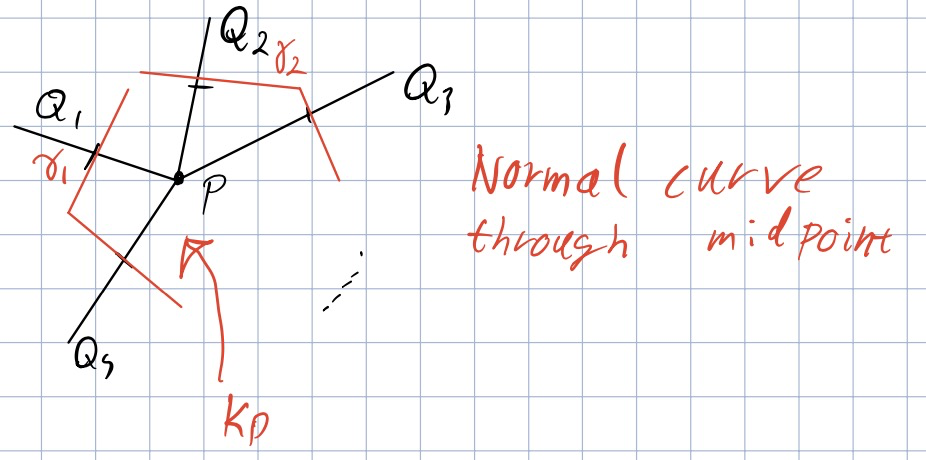 Q2
γ2
Q3
Q1
γ1
P
Normal curve
through midpoint
Q4
Kp